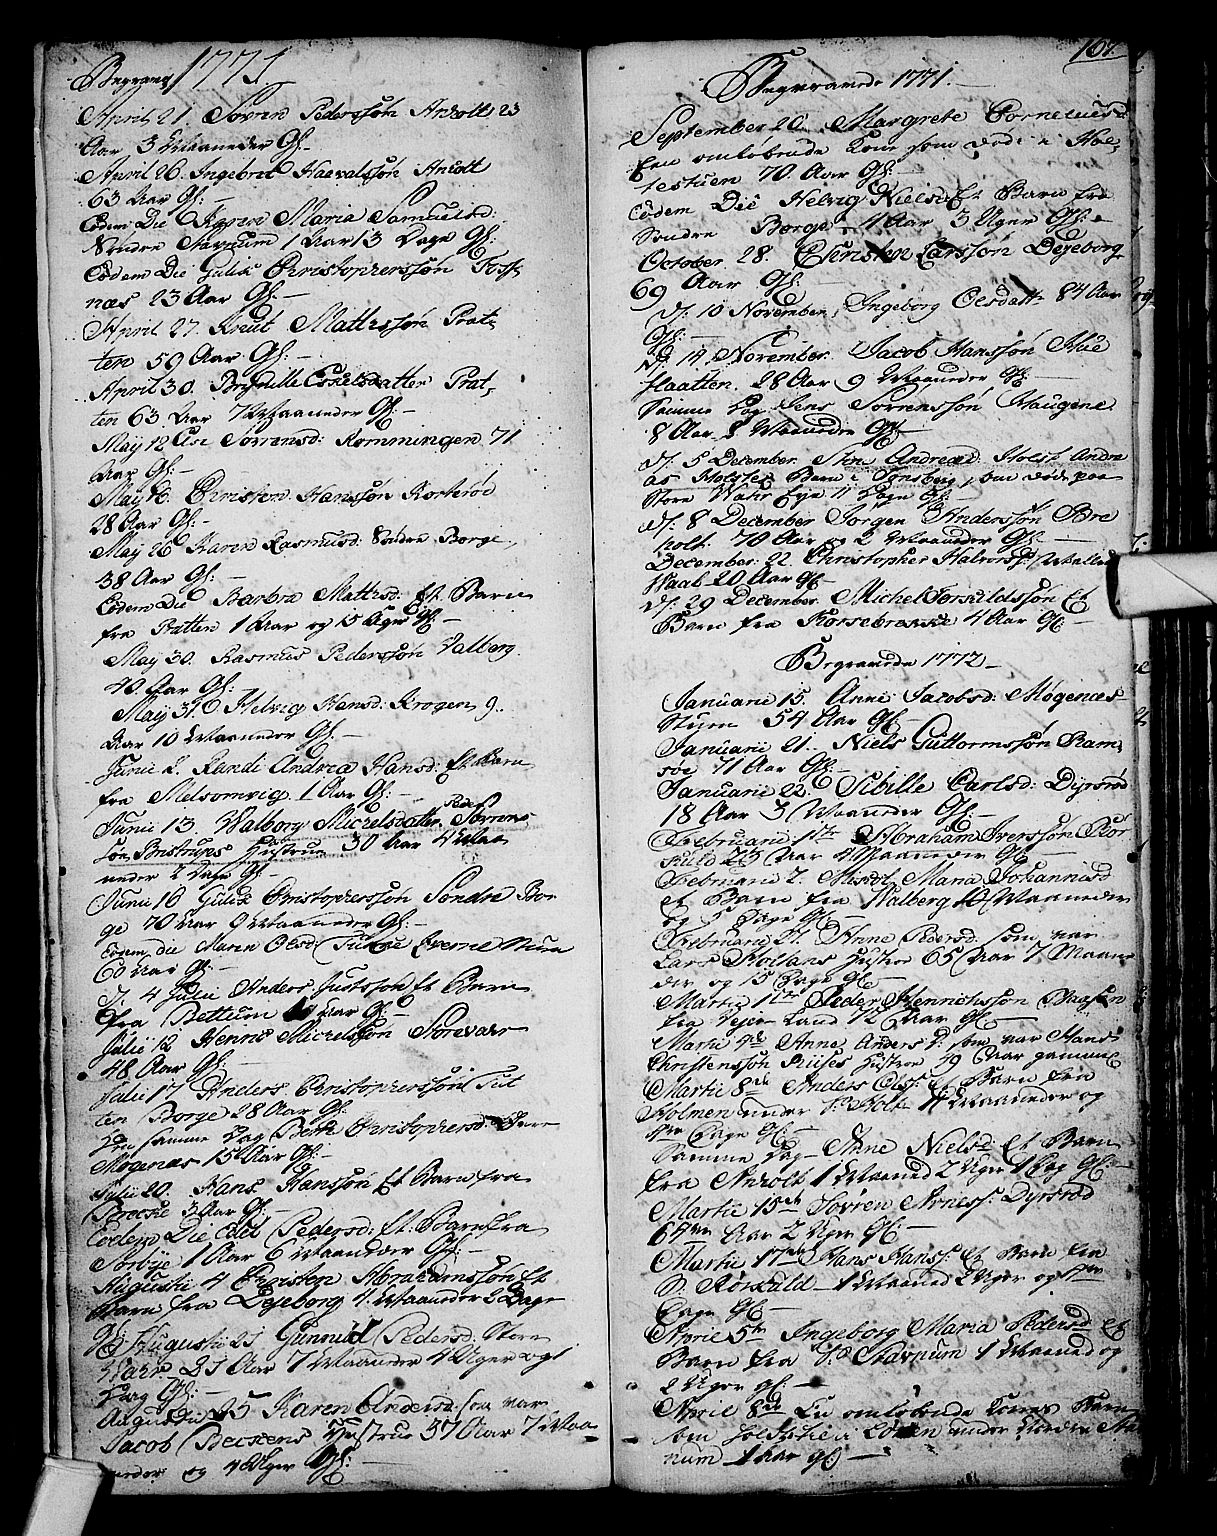 Begravne 1771
April 21. Sören Pederssön Anholt 23
Aar 3 Maaneder Gl:
April 26. Ingebret Haavalssön Anholt
63 Aar Gl:
Eodem Die Karen Maria Samuelsd:
Söndre Stavnum 1 Aar 13 Dage Gl:
Eodem Die Gulik Christopherssön Foss
næs 23 Aar Gl:
April 27. Knut Mathissön Prat
ten 59 Aar Gl:
April 30. Brynille Eskelsdatter Prat
ten 63 Aar 7 Maaneder Gl:
May 12 Else Sörrensd: Romminingen 71
Aar Gl:
May 16. Christen Hanssön Korteröd
28 Aar Gl:
May 26 Karen Rasmusd: Söndre Borge
38 Aar Gl:
Eodem Die Barbra Mathisd: Et Barn
fra Pratten 1 Aar og 15 Uger Gl:
May 30. Rasmus Pederssön Valberg.
40 Aar Gl:
May 31. Helvig Hensd: Krogen 9
Aar 10 Maaneder Gl:
Junii 2. Randi Andrea Hansd: Et Barn
fra Melsomvig 1 Aar Gl:
Junii 13. Valborg Michelsdatter Peder Sörrens
sön Bristrups Hustrue 30 Aar 4 Maa
neder 2 Dage Gl:
Junii 16 Gulik Christopherssön Sondre Bor
ge 70 Aar 9 Maaneder Gl:
Eodem die Maren Olsd:
60 Aar Gl:
D. 4 Julii Anders Justssön Et Barn
fra Bettum Aar Gl:
Julii 12 Henric Michelssön Storevaar
48 Aar Gl:
Julii 17 Anders Christopherssön
ten Borge 28 Aar Gl:
Den samme Dag Berthe Christophersd:
Mögenæs 15 Aar Gl:
Julii 20. Hans Hanssön Et Barn fra
Brecke 3 Aar Gl:
Eodem Die Edel Pedersd: Et Barn fra
Sörbye 1 Aar 6 Maaneder Gl:
Augustii 4 Christen Abrahamssön Et
Barn fra Dejeborg 4 Maaneder 2 Dage
Gl: Augustii 25 Gunnild Pedersd: Store
Waar 25 Aar 7 Maaneder 4 Uger og 1
Dag Gl:
Augustii 25 Karen Andersd: som var
Jacob Bentsens Hustrue 57 Aar 7 Maa
neder og 4 Uger Gl:
107.
Begravede 1771.
September 20. Margrete Cornelius d
Een omløbende Kone som døde i Hol
testuen 70 Aar Gl:
Eodem Die Helvig Nielsd: Et Barn fra
Söndre Borge 11 Aar 3 Uger Gl:
October 28. Christen Larssön Dejeborg
69 Aar Gl:
D. 10 November Ingeborg Olesdatt: 84 Aar
Gl:
D. 14 November Jacob Hanssön Hue
flaatten 28 Aar 9 Maaneder Gl:
Samme Dag Jens Sörrenssön Haugene
8 Aar 8 Maaneder Gl:
D. 5 December Andreas Holst Andre
as Holstes Barn i Tønsberg, som døde paa
Store Waar Eye 11 Dage Gl:
D. 8 December Jörgen Anderssön Bre
holt 70 Aar og 2 Maaneder Gl:
December 22. Christopher Halvorss: Walløe
Waab 20 Aar Gl:
D. 29 December Michel Torkildssön Et
Barn fra Korsebrecke 4 Aar Gl:
Begravede 1772
Januarii 15. Anne Jacobsd: Møgenæs
Stuen 54 Aar Gl:
Januarii 21. Niels Guttormssön Ram
söe 71 Aar Gl:
Januarii 22 Sibille Carlsd: Dyrsröd
18 Aar 3 Maaneder Gl:
Februarii 1te Abraham Iverssön Ror
kuld 23 Aar 4 Maaneder Gl:
Februarii 2. Maria Johannisd
Et Barn fra Walberg 10 Maaneder
og 5 Dage Gl:
Februarii 21. Anne Pedersd: som var
Lars Hollans Hustroe 65 Aar 7 Maane
der og 15 Dage Gl:
Martii 1te Peder Henrichssön Bugsen
fra Vejer Land 72 Aar Gl:
Martii 4de Anne Andersd: som var Hans
Christenssön Ruses Hustroe 49 Aar gammel
Martii 8de Anders Olss: Et Barn fra
Holmen under S. Holt 4 Maaneder og
Dage Gl:
Samme Dag Anne Nielsd: Et Barn
fra Anholt 1 Maaned 2 Uger 1 Dag Gl:
Martii 15de Sörren Arness: Dyrsröd
64 Aar 2 Uger Gl:
Martii 17de Hans Hanss: Et Barn fra
S: Rorkuld 1 Maaned 2 Uger og
Dage Gl:
April 5te Ingeborg Maria Pedersd: Et
Barn fra S. Stavnum 1 Maaned og
2 Uger gl:
April 8de En omløbende Kones Barn
som holdt til i under Nordre Sta
num 1 Aar gl: